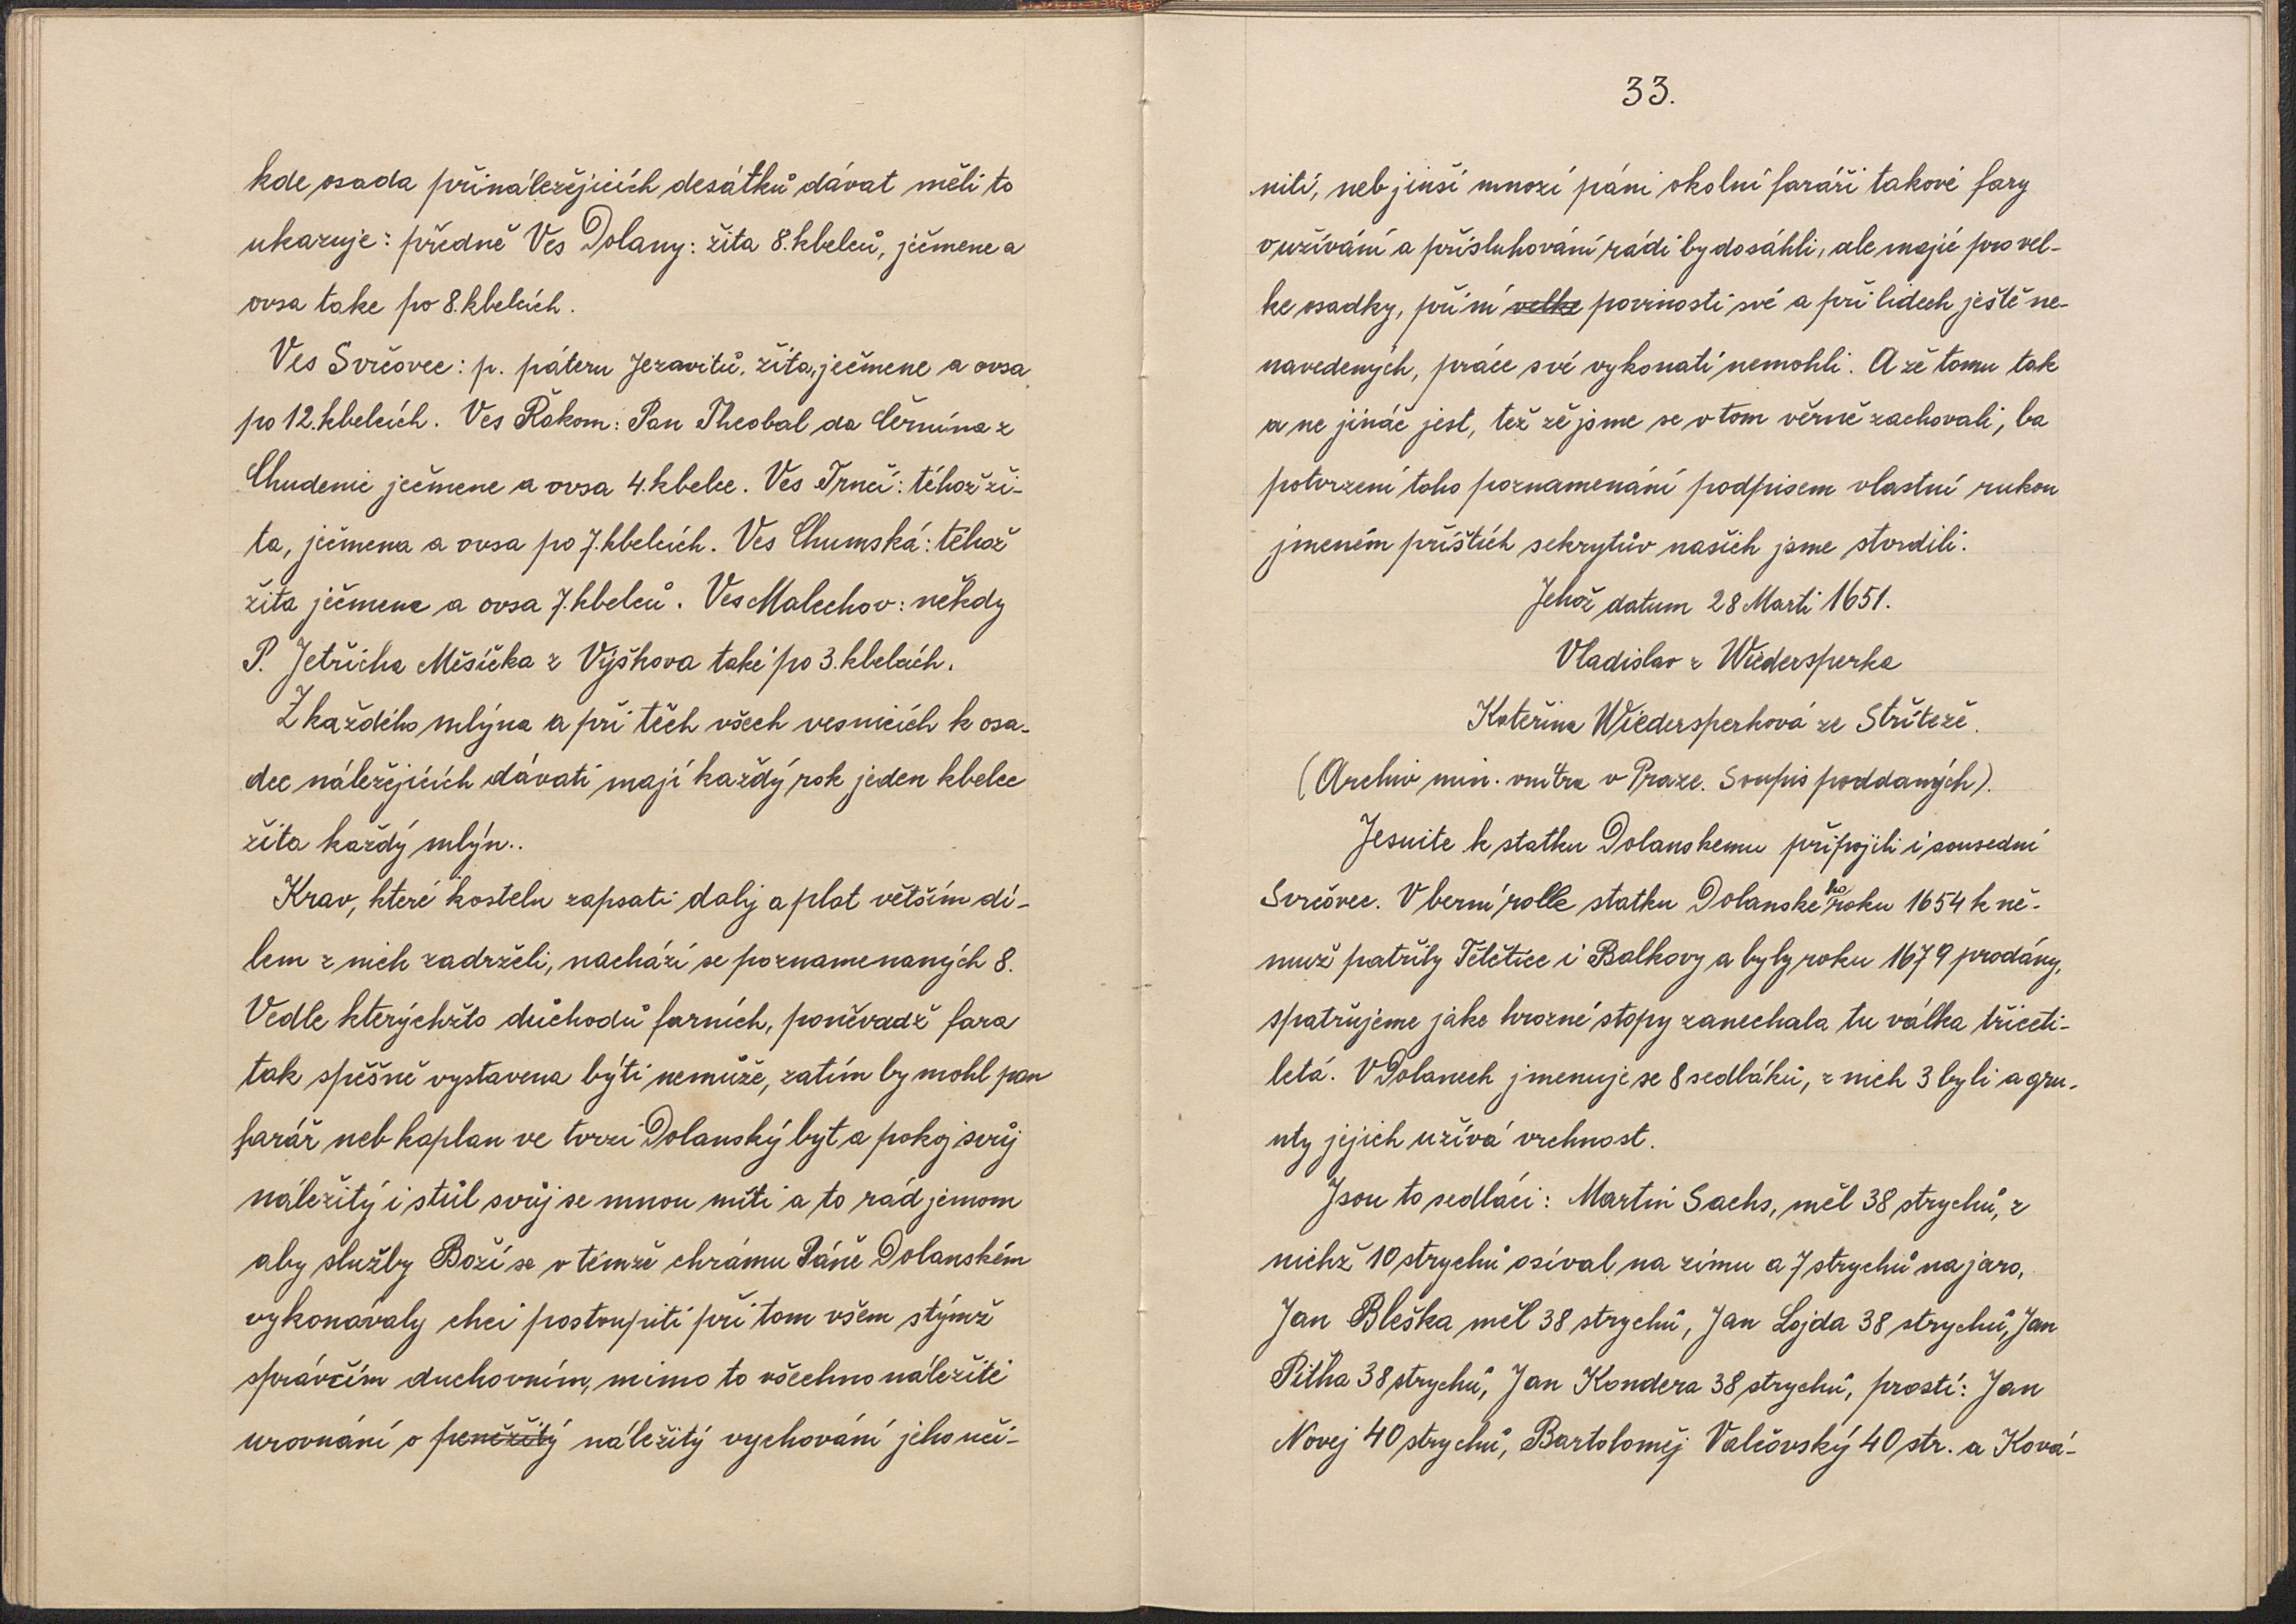 kde osada přináležějících desátků dávat měli to
ukazuje: předně Ves Dolany: žita 8. kbelců, ječmene a
ovsa take po 8. kbelcích.
Ves Svrčovec: p. páteru Jezavitů, žita, ječmene a ovsa
po 12. kbelcích. Ves Řakom: Pan Theobal da Černína z
Chudenic ječmene a ovsa 4. kbelce. Ves Trnčí: téhož ži-
ta, ječmena a ovsa po 7. kbelcích. Ves Chumská: téhož
žita ječmene a ovsa 7. kbelců. Ves Malechov: někdy
P. Jetřicha Měsíčka z Výškova také po 3. kbelcích.
Z každého mlýna a při těch všech vesnicích k osa-
dec náležejících dávati mají každý rok jeden kbelec
žita každý mlýn..
Krav, které kostelu zapsati daly a plat větším dí-
lem z nich zadrželi, nachází se poznamenaných 8.
Vedle kterýchžto důchodů farních, poněvadž fara
tak spěšně vystavena býti nemůže, zatím by mohl pan
farář neb kaplan ve tvrzi Dolanský byt a pokoj svůj
náležitý i stůl svůj se mnou míti a to rád jemom
aby služby Boží se v témže chrámu Páně Dolanském
vykonávaly chci postoupiti při tom všem stýmž
správčím duchovním, mimo to všechno náležité
urovnání o peněžitý náležitý vychování jeho uči-
33.
niti, neb jinší mnozí páni okolní faráři takové fary
v užívání a přisluhování rádi by dosáhli, ale majíc pro vel-
ke osadky, při ní velke povinosti své a při lidech ještě ne-
navedených, práce své vykonati nemohli. A že tomu tak
a ne jináč jest, též že jsme se v tom věrně zachovali, ba
potvrzení toho poznamenání podpisem vlastní rukou
jmeném příštích sekrytův našich jsme stvrdili.
Jehož datum 28 Marti 1651.
Vladislav z Wiedersperka
Kateřina Wiedersperková ze Stříteže.
(Archiv min. vnitra v Praze. Soupis poddaných).
Jesuite k statku Dolanskemu připojili i sousední
Svrčovec. V berní rolle statku Dolanskeho roku 1654 k ně-
muž patřily Tětětice i Balkovy a byly roku 1679 prodány,
spatřujeme jake hrozné stopy zanechala tu válka třiceti-
letá. V Dolanech jmenuje se 8 sedláků, z nich 3 byli a gru-
nty jejich užívá vrchnost.
Jsou to sedláci: Martin Sachs, měl 38 strychů, z
nichž 10 strychů osíval na zimu a 7 strychů na jaro,
Jan Bleška měl 38 strychů, Jan Lojda 38 strychů, Jan
Pitha 38 strychů, Jan Kondera 38 strychů, prostí: Jan
Novej 40 strychů, Bartoloměj Valčovský 40 str. a Ková-